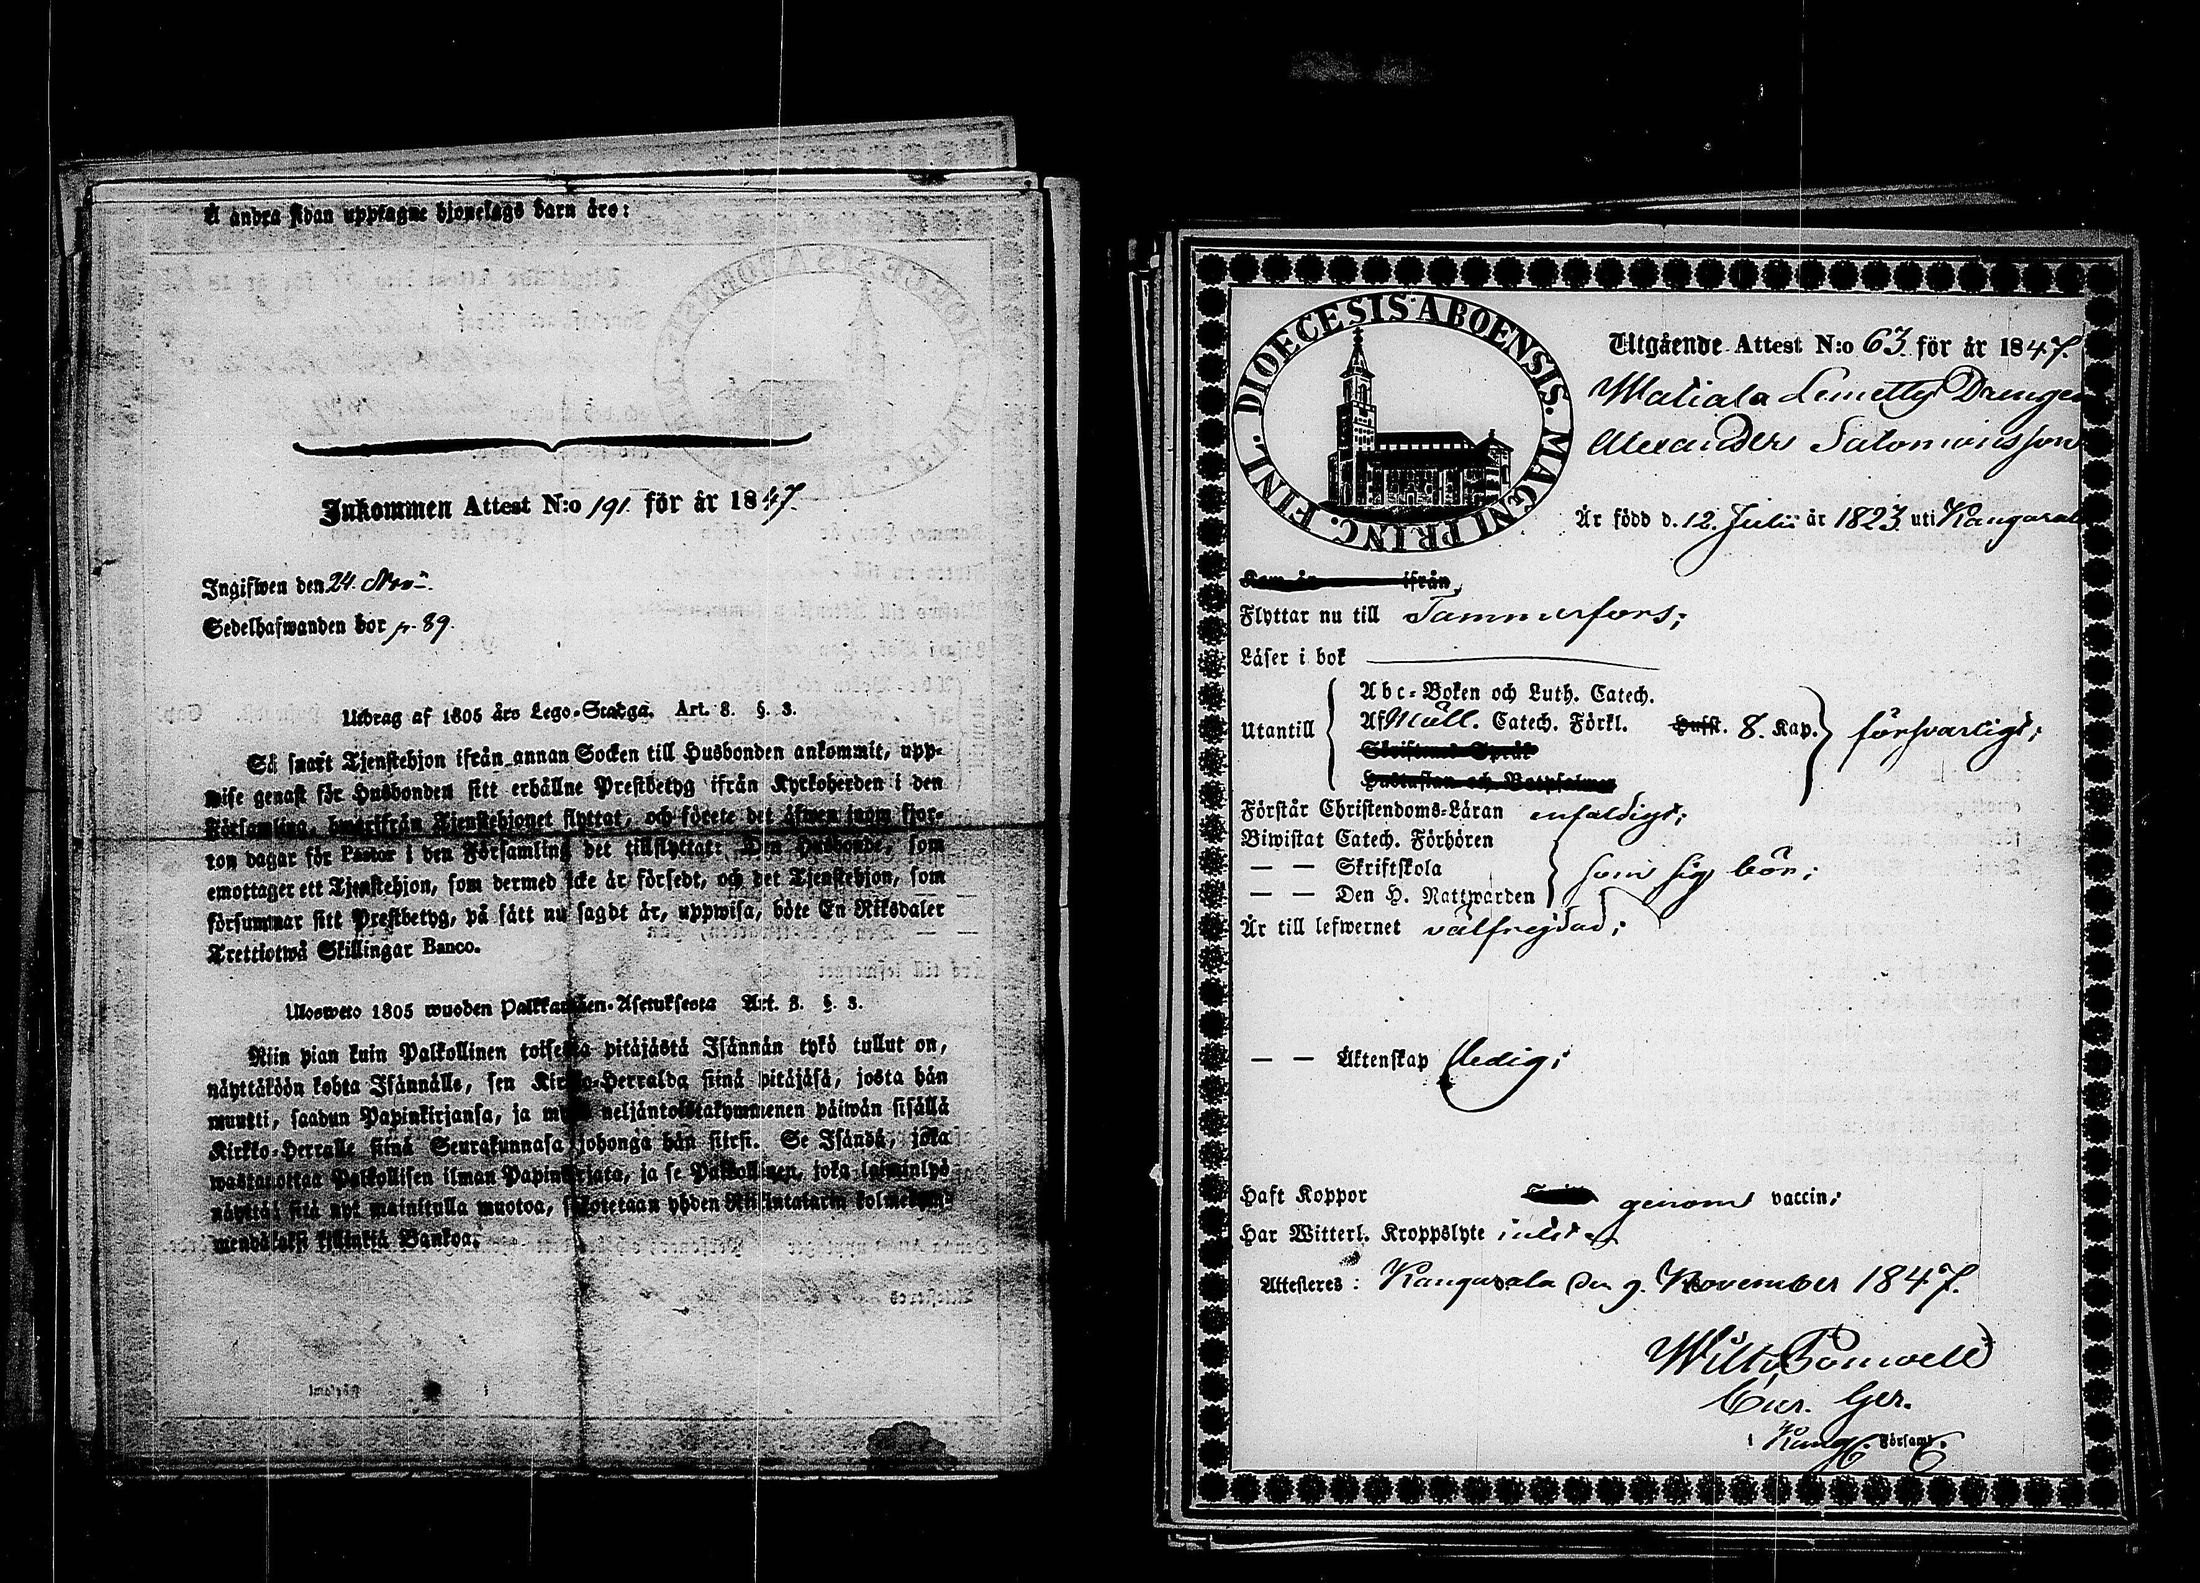 Å andra sidan upptagne hjonelags barn äro:
Inkommen Attest N:o 191. för år 1847.
Ingifwen den 24. Nov.
Sedelhafwanden bor p. 89.
Utdrag af 1805 års Lego-Stadga. Art. 8. §. 3.
Så snart Tjenstehjon ifrån annan Socken till Husbonden ankommit, upp-
wise genast för Husbonden sitt erhållne Prestbetyg ifrån Kyrkoherden i den
Församling, hwarifrån Tjenstehjonet flyttat, och förete det äfwen inom fjor-
ton dagar för Pastor i den Församling det tillflyttat: Den Husbonde, som
emottager ett Tjenstehjon, som dermed icke är försedt, och det Tjenstehjon, som
försummar sitt Prestbetyg, på sätt nu sagdt är, uppwisa, böte En Riksdaler
Trettiotwå Skillingar Banco.
Ulosweto 1805 wuoden Palkkauden-Asetuksesta Art. 8. §. 3.
Niin pian kuin Palkollinen toisesta pitäjästä Isännän tykö tullut on,
näyttäköön kohta Isännälle, sen Kirkko-Herralda siinä pitäjäsä, josta hän
muutti, saadun Papinkirjansa, ja myös neljäntoistakymmenen päiwän sisällä
Kirkko-Herralle siinä Seurakunnasa johonga hän siirsi. Se Isändä, joka
wastanottaa Palkollisen ilman Papinkirjata, ja se Palkollinen, joka laiminlyö
näyttää sitä nyt mainitulla muotoa, sakotetaan yhden Riksintalarin kolmekym-
mendäkaksi killinkiä Bankoa.
DIOECESIS ABOENSIS. MAGNI PRINC. FINL.
Utgående Attest N:o 63. för år 1847.
Matiala Lemetty Drengen
Alexander Salomonsson
Är född d. 12. Julii år 1823 uti Kangasala
Kom år ifrån
Flyttar nu till Tammerfors;
Läser i bok
Utantill
Abc-Boken och Luth. Catech.
Af Möll. Catech. Förkl. Hufst. 8. Kap. försvarligt;
Skriftenes Språk
Hustaflan och Botpsalmer
Förstår Christendoms-Läran enfaldigt;
Biwistat Catech. Förhören
— — Skriftskola som sig bör;
— — Den H. Nattwarden
Är till lefwernet välfrejdad;
— — Äktenskap ledig;
Haft Koppor genom vaccin;
Har Witterl. Kroppslyte intet
Attesteres: Kangasala den 9. November 1847.
Cur. Ger.
i Kang. Församl.